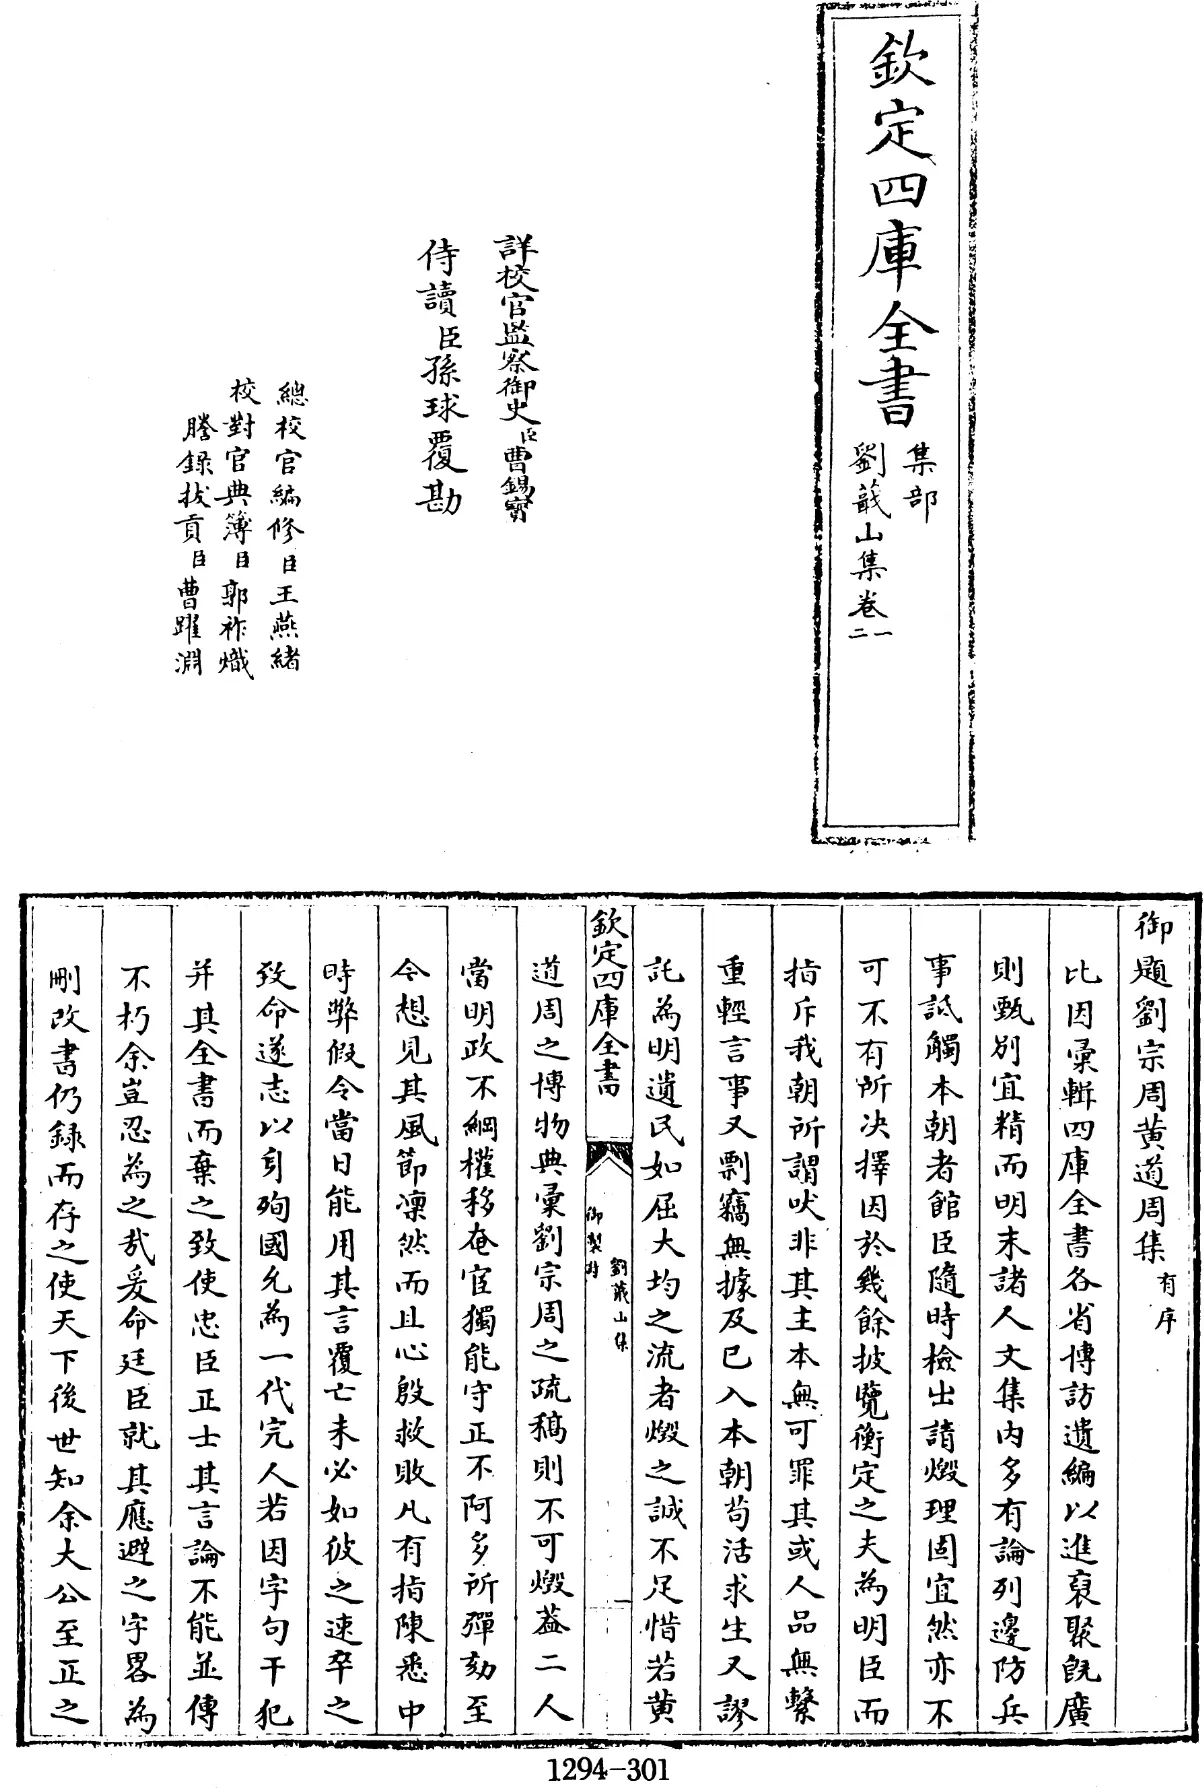 欽定四庫全書
集部
劉蕺山集卷一
二
詳校官監察御史臣曹錫寶
侍讀臣孫球覆勘
總校官編修臣王燕緒
校對官典簿臣郭祚熾
謄錄拔貢臣曹躍淵
御題劉宗周黃道周集有序
比因彙輯四庫全書各省博訪遺編以進裒聚旣廣
則甄別宜精而明末諸人文集内多有論列邊防兵
事詆觸本朝者館臣隨時檢出請燬理固宜然亦不
可不有所决擇因於幾餘披覽衡定之夫為明臣而
指斥我朝所謂吠非其主本無可罪其或人品無繫
重輕言事又剽竊無據及已入本朝苟活求生又謬
託為明遺民如屈大均之流者燬之誠不足惜若黃
欽定四庫全書
劉蕺山集
御製詩
一
道周之博物典彙劉宗周之疏稿則不可燬葢二人
當明政不綱權移奄宦獨能守正不阿多所彈劾至
今想見其風節凜然而且心殷救敗凡有指陳悉中
時弊假令當日能用其言覆亡未必如彼之速卒之
致命遂志以身殉國允為一代完人若因字句干犯
并其全書而棄之致使忠臣正士其言論不能並傳
不朽余豈忍為之哉爰命廷臣就其應避之字畧為
刪改書仍録而存之使天下後世知余大公至正之
1294-301